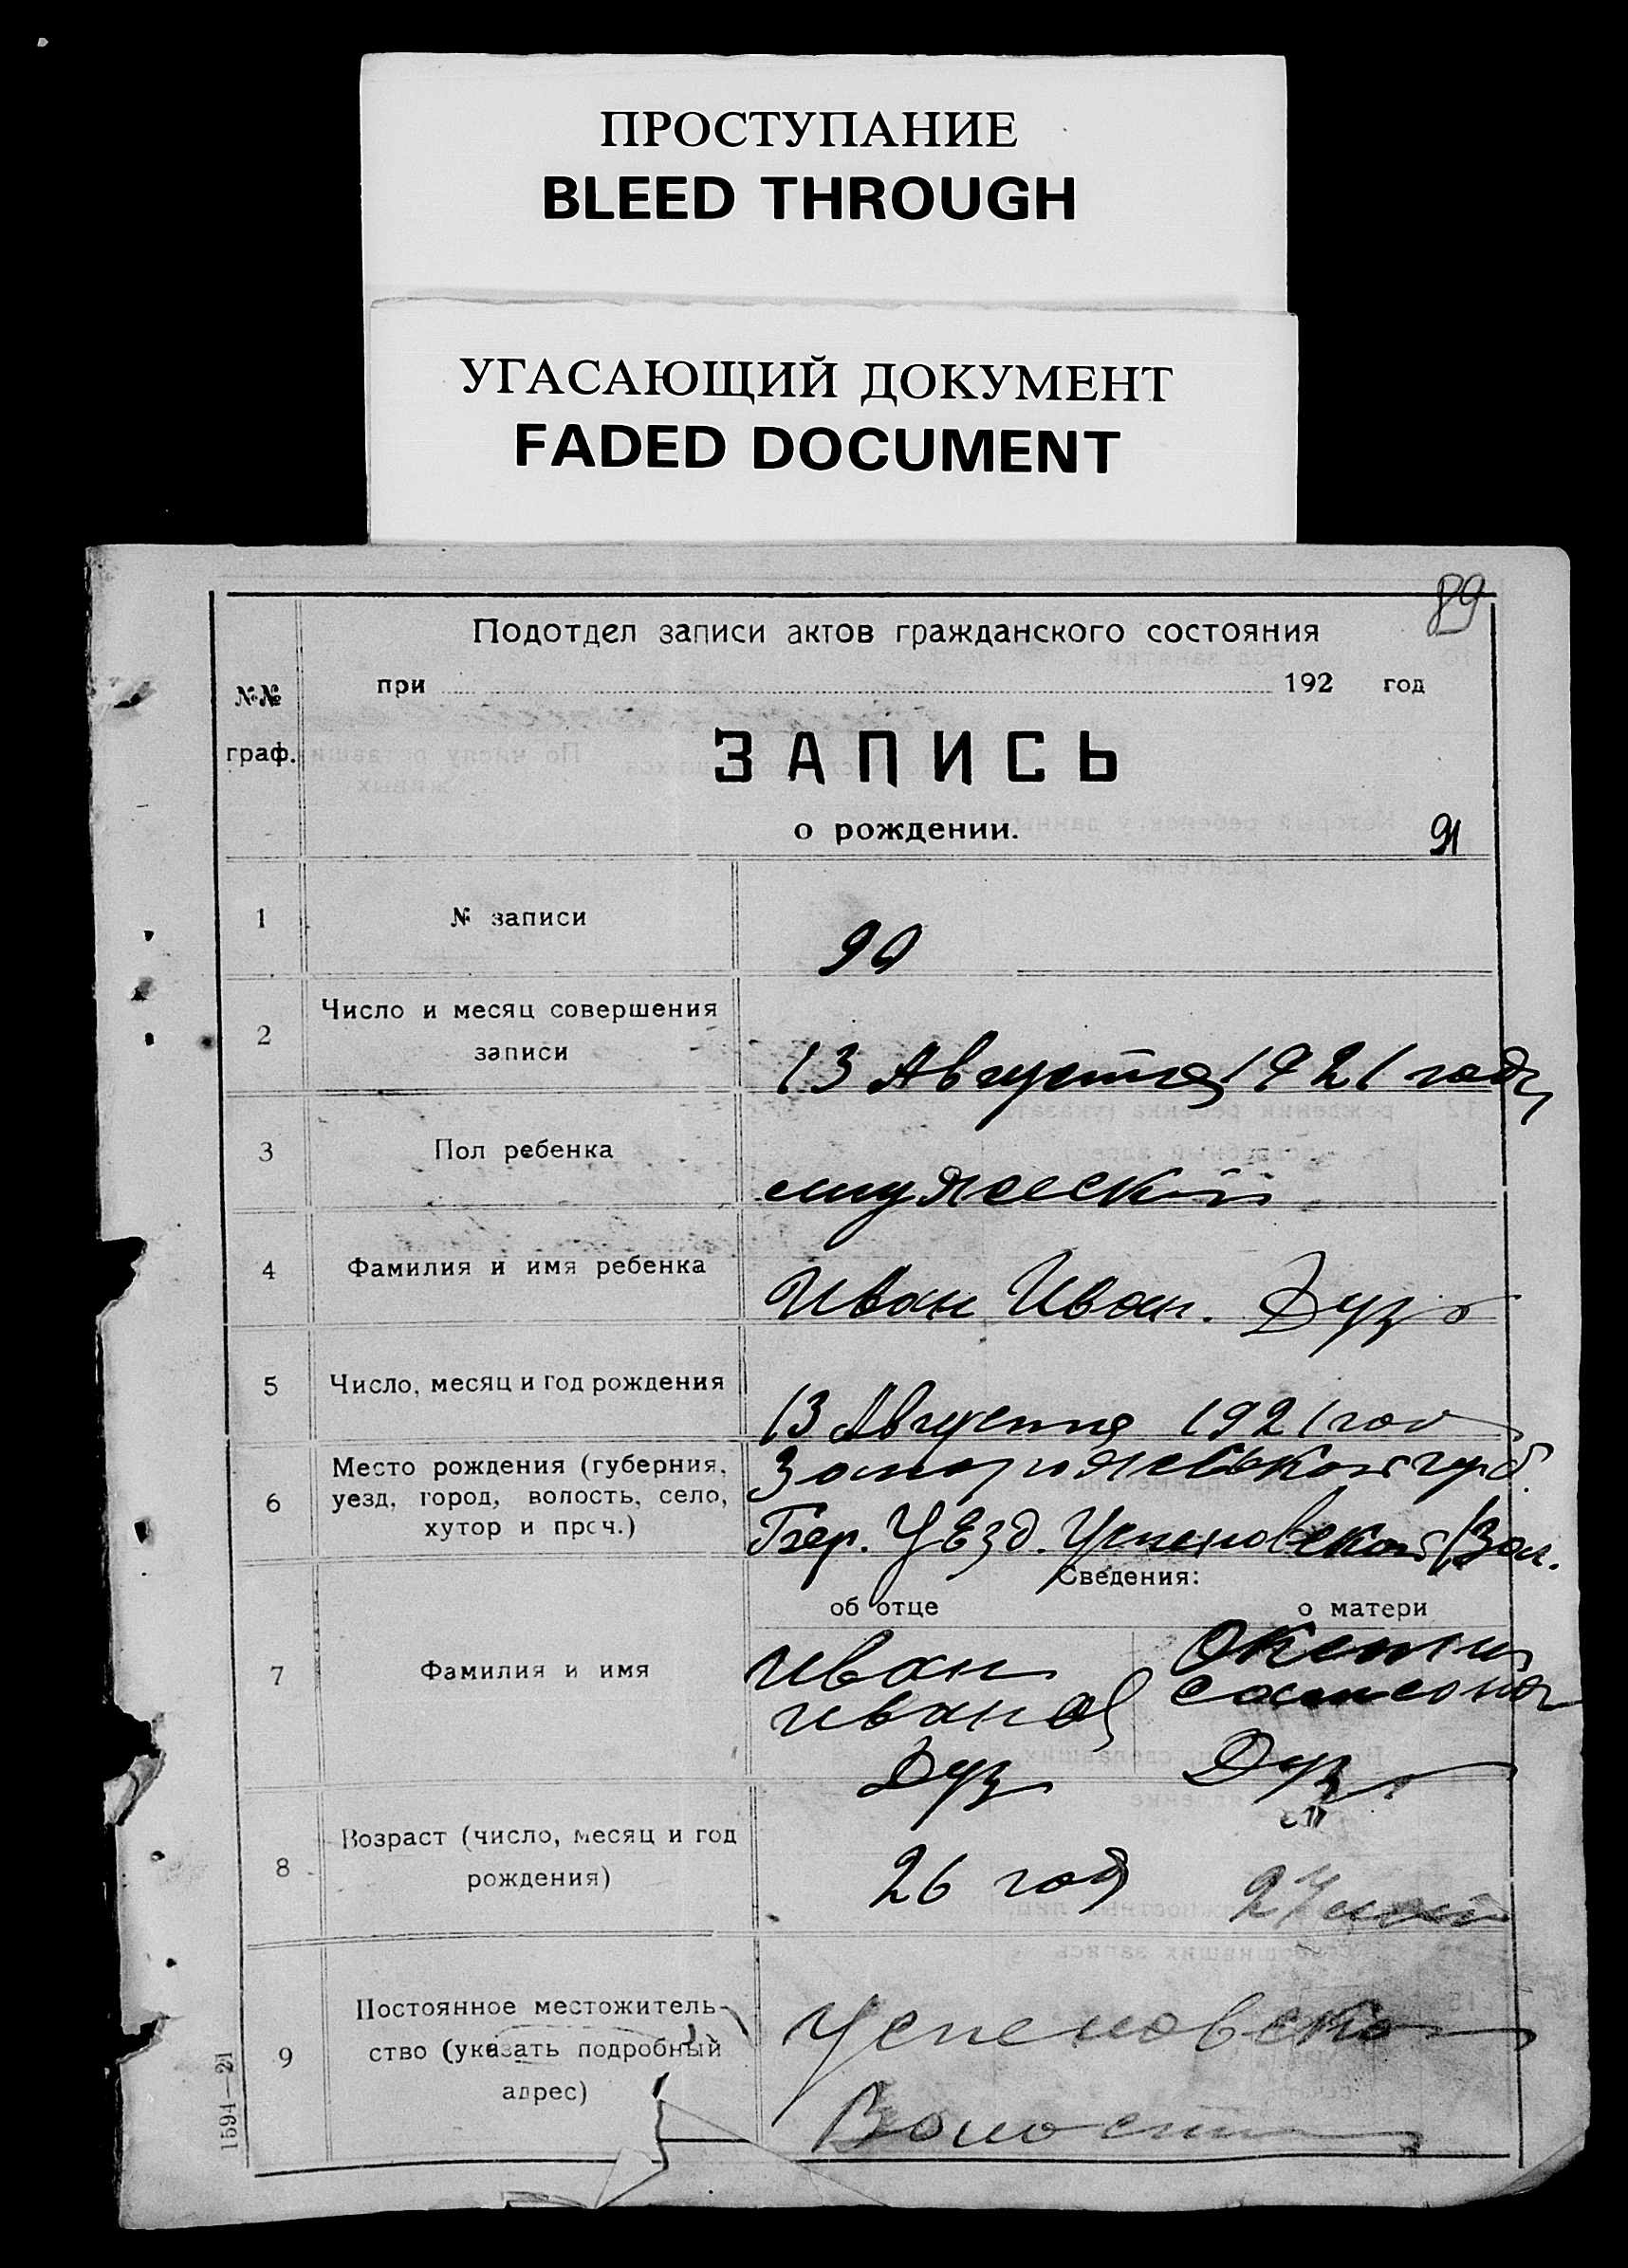 ПРОСТУПАНИЕ
BLEED THROUGH
УГАСАЮЩИЙ ДОКУМЕНТ
FADED DOCUMENT
89
Подотдел записи актов гражданского состояния
при 192 год
№№
граф.
ЗАПИСЬ
о рождении.
91
1 № записи
90
2 Число и месяц совершения
записи
13 Августа 1921 года
3 Пол ребенка
мужеский
4 Фамилия и имя ребенка
Иван Иван. Дуз
5 Число, месяц и год рождения
13 Августа 1921 год
6 Место рождения (губерния,
уезд, город, волость, село,
хутор и проч.)
Запорожевской губ.
Бер. Уезд. Успеновской Вол.
Сведения:
об отце о матери
7 Фамилия и имя
Иван
Иванов
Дуз
Самсоно
Дуз
8 Возраст (число, месяц и год
рождения)
26 год 27
9 Постоянное местожитель-
ство (указать подробный
адрес)
Успеновско
Волости
1594—21